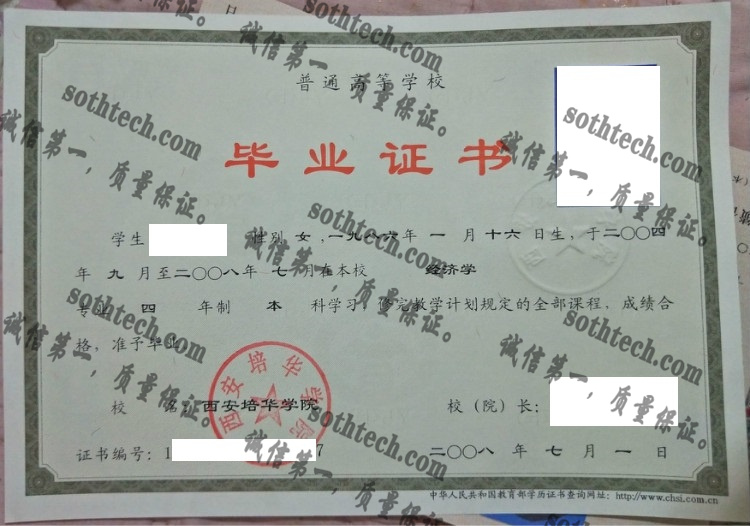 普通高等学校
毕业证书
学生 性别 女,一九八六年 一 月 十六 日生,于二〇〇四
年 九 月至二〇〇八年 七 月在本校 经济学
专业 四 年制 本 科学习,修完教学计划规定的全部课程,成绩合
格,准予毕业。
校 名:西安培华学院 校(院)长:
证书编号:1 7 二〇〇八 年 七 月 一 日
中华人民共和国教育部学历证书查询网址:http://www.chsi.com.cn
西安培华学院
sothtech.com
诚信第一,质量保证。
sothtech.com
诚信第一,质量保证。
sothtech.com
诚信第一,质量保证。
sothtech.com
诚信第一,质量保证。
sothtech.com
诚信第一,质量保证。
sothtech.com
诚信第一,质量保证。
sothtech.com
诚信第一,质量保证。
sothtech.com
诚信第一,质量保证。
sothtech.com
诚信第一,质量保证。